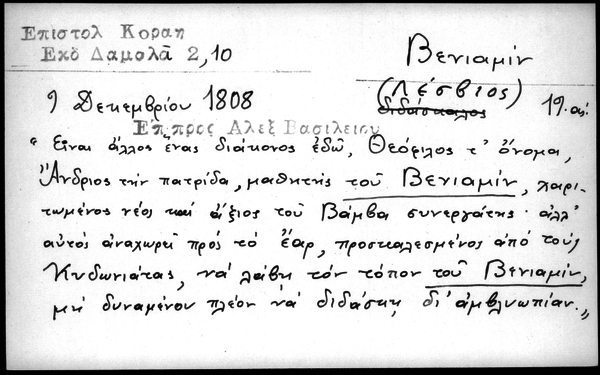 Επιστολ Κοραη
Εκδ Δαμαλᾶ 2,10
Βενιαμίν
(Λέσβιος)
διδάσκαλος
19. αἰ.
9 Δεκεμβρίου 1808
Επ προς Αλεξ Βασιλειου
"Εἶναι ἄλλος ἕνας διάκονος ἐδῶ, Θεόφιλος τ' ὄνομα,
Ἄνδριος τὴν πατρίδα, μαθητὴς τοῦ Βενιαμίν, χαρι-
τωμένος νέος καὶ ἄξιος τοῦ Βάμβα συνεργάτης· ἀλλ'
αὐτὸς ἀναχωρεῖ πρὸς τὸ ἔαρ, προσκαλεσμένος ἀπὸ τοὺς
Κυδωνιάτας, νὰ λάβῃ τὸν τόπον τοῦ Βενιαμίν,
μὴ δυναμένου πλέον νὰ διδάσκῃ δι' ἀμβλυωπίαν."